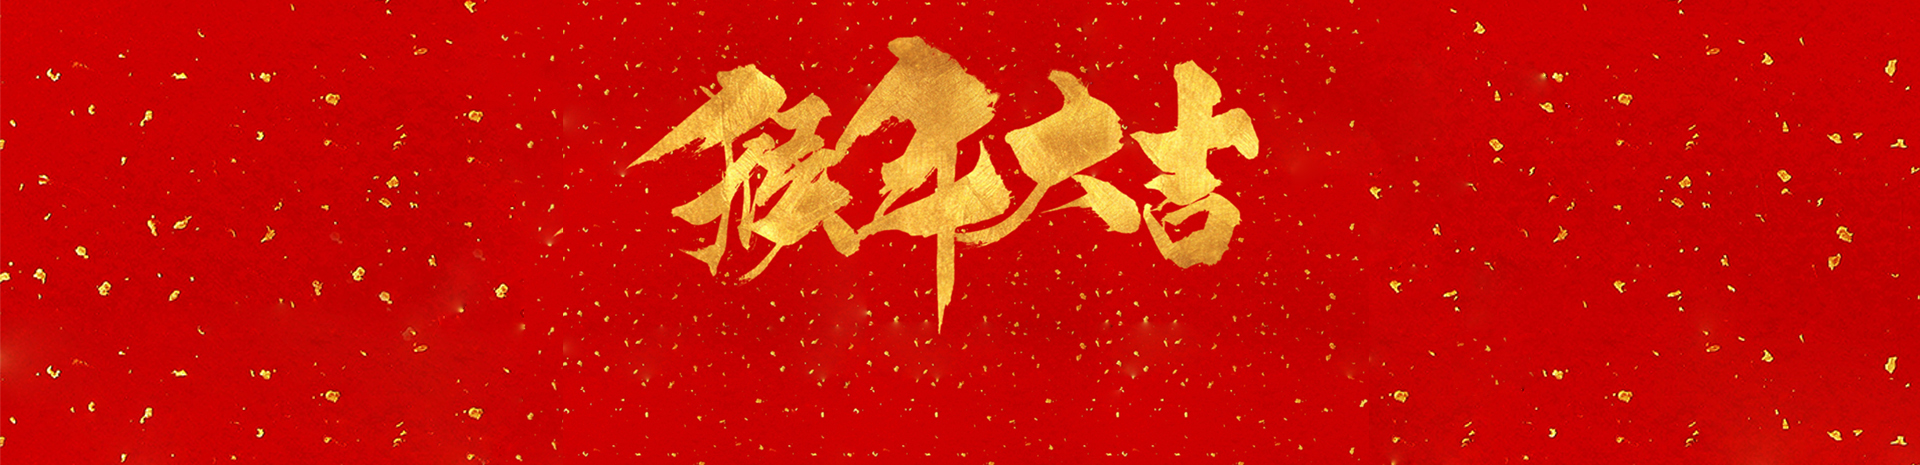 猴年大吉